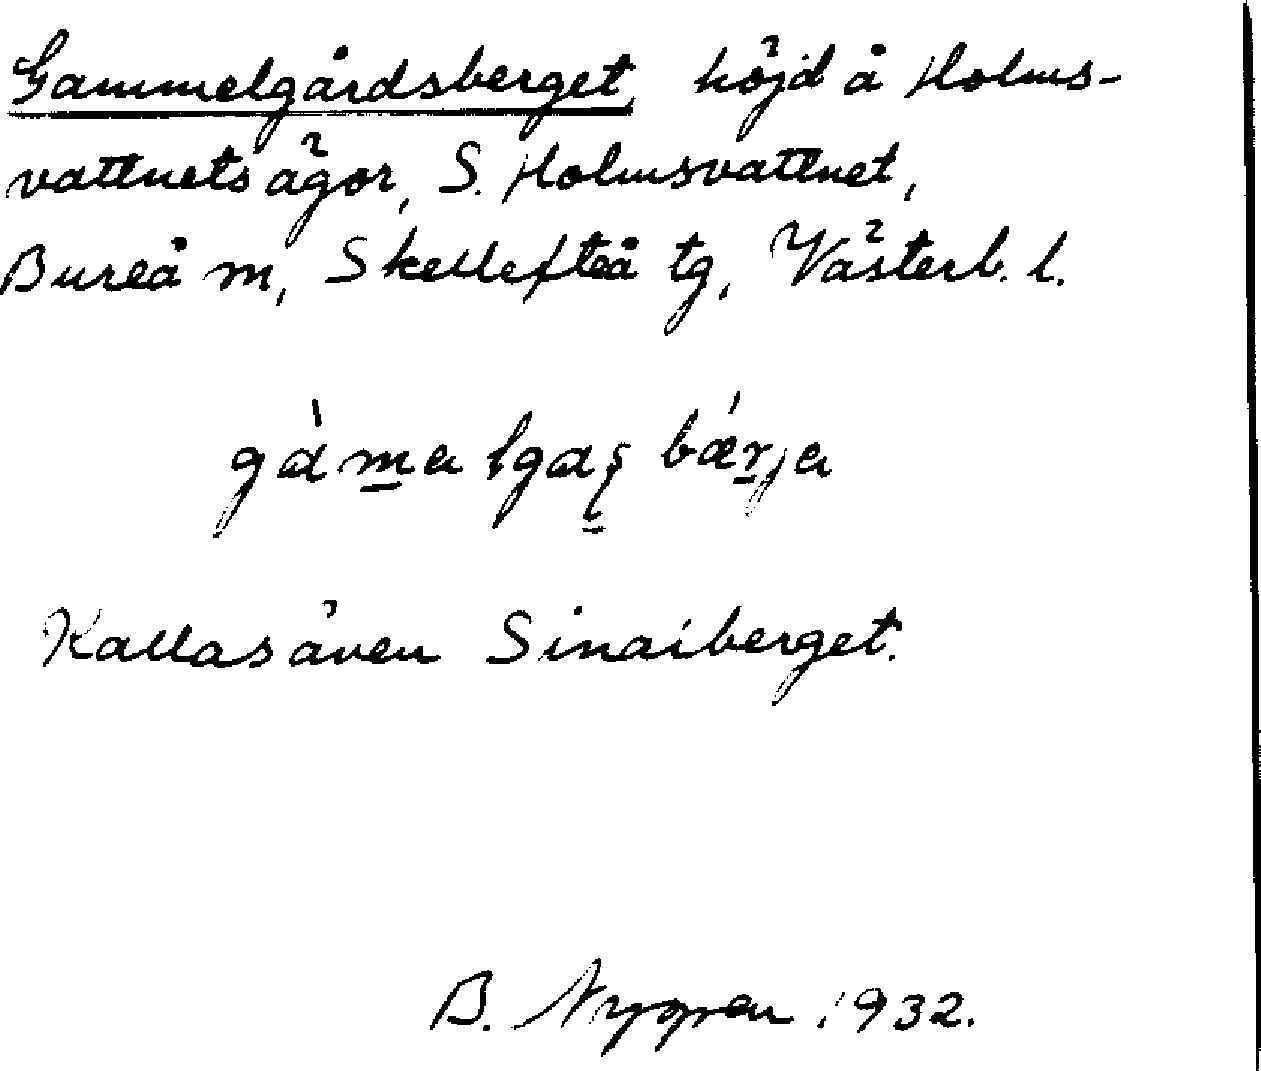 Gammelgårdsberget, höjd å Holms-
vattnets ägor, S. Holmsvattnet,
Bureå m, Skellefteå tg, Västerb. l.
Kallas även Sinaiberget.
B. Nygren 1932.